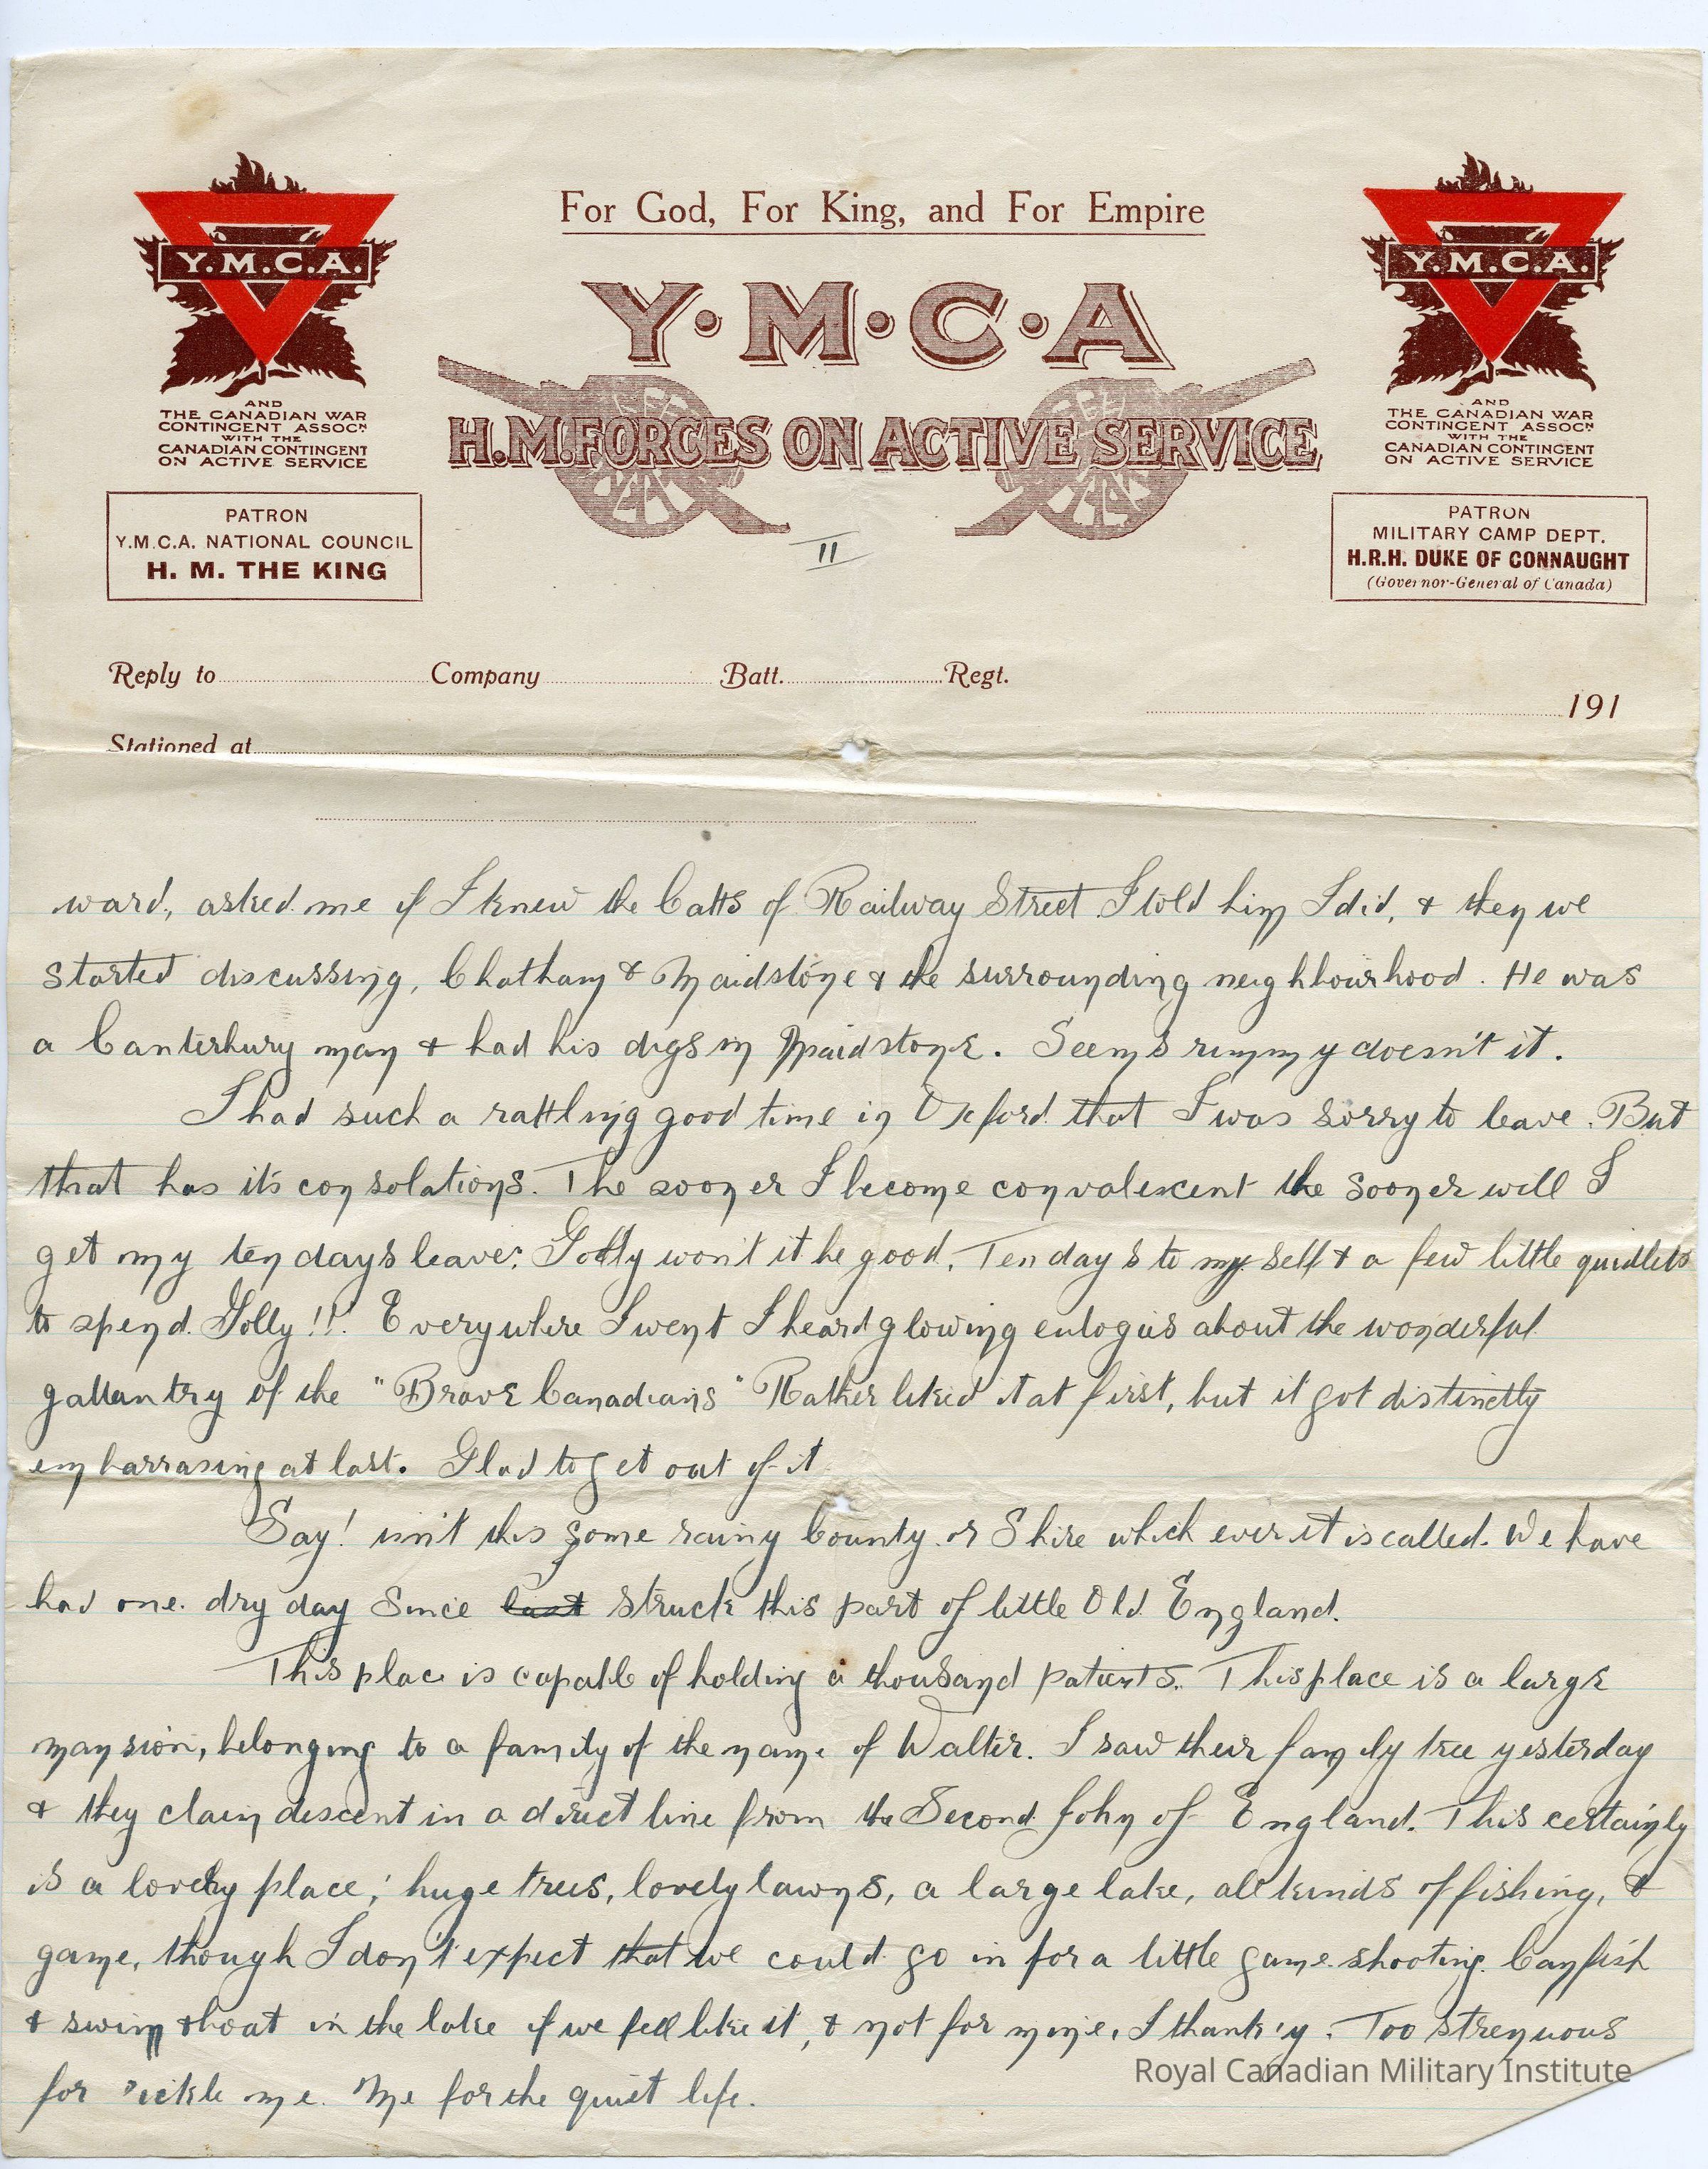 For God, For King, and For Empire
Y.M.C.A.
AND
THE CANADIAN WAR
CONTINGENT ASSOCN
WITH THE
CANADIAN CONTINGENT
ON ACTIVE SERVICE
PATRON
Y.M.C.A. NATIONAL COUNCIL
H. M. THE KING
Y·M·C·A
H.M. FORCES ON ACTIVE SERVICE
II
Y.M.C.A.
AND
THE CANADIAN WAR
CONTINGENT ASSOCN
WITH THE
CANADIAN CONTINGENT
ON ACTIVE SERVICE
PATRON
MILITARY CAMP DEPT.
H.R.H. DUKE OF CONNAUGHT
(Governor-General of Canada)
Reply to Company Batt. Regt.
191
Stationed at
ward, asked me if I knew the Catts of Railway Street I told him I did, & then we
started discussing, Chatham & Maidstone & the surrounding neighbourhood. He was
a Canterbury man & had his digs in Maidstone. Seems rummy doesn't it.
I had such a rattling good time in Oxford that I was sorry to leave. But
that has its consolations. The sooner I become convalescent the sooner will I
get my ten days leave. Golly won't it be good. Ten days to my self & a few little quidlets
to spend. Golly!!! Everywhere I went I heard glowing eulogies about the wonderful
gallantry of the "Brave Canadians" Rather liked it at first, but it got distinctly
embarrasing at last. Glad to get out of it
Say! isn't this some rainy County or Shire which ever it is called. We have
had one dry day since last struck this part of little Old England.
This place is capable of holding a thousand patients. This place is a large
mansion, belonging to a family of the name of Walter. I saw their family tree yesterday
& they claim descent in a direct line from the Second John of England. This certainly
is a lovely place; huge trees, lovely lawns, a large lake, all kinds of fishing, &
game, though I don't expect that we could go in for a little game shooting. Can fish
& swim & boat in the lake if we feel like it, & not for mine, I thank'y. Too strenuous
for little me. Me for the quiet life.
Royal Canadian Military Institute